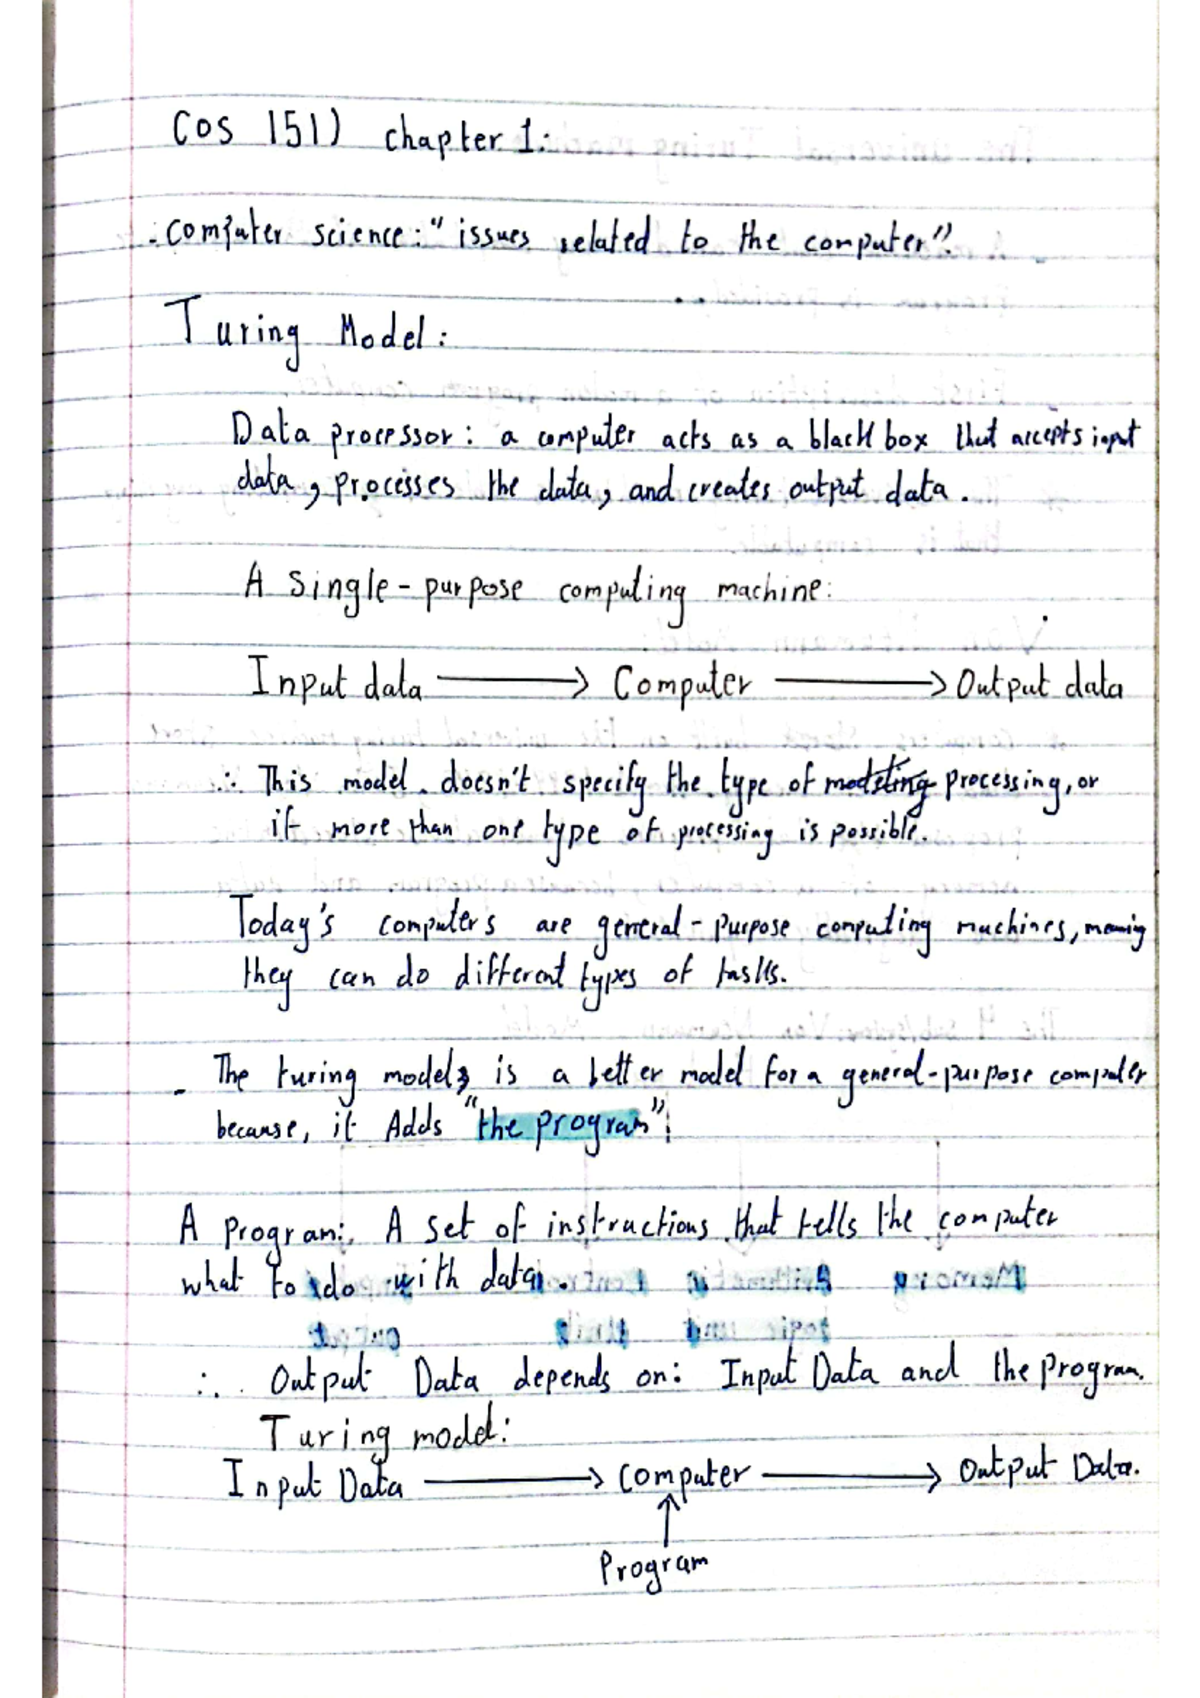 COS 151) chapter 1:
. computer science: "issues related to the computer".
Turing Model:
Data processor: a computer acts as a black box that accepts input
data, processes the data, and creates output data.
A single-purpose computing machine:
Input data → Computer → Output data
∴ This model doesn't specify the type of processing, or
if more than one type of processing is possible.
Today's computers are general-purpose computing machines, meaning
they can do different types of tasks.
- The turing model, is a better model for a general-purpose computer
because, it Adds "the program"
A program: A set of instructions that tells the computer
what to do with data.
∴ Output Data depends on: Input Data and the program.
Turing model:
Input Data → computer → Output Data.
↑
Program